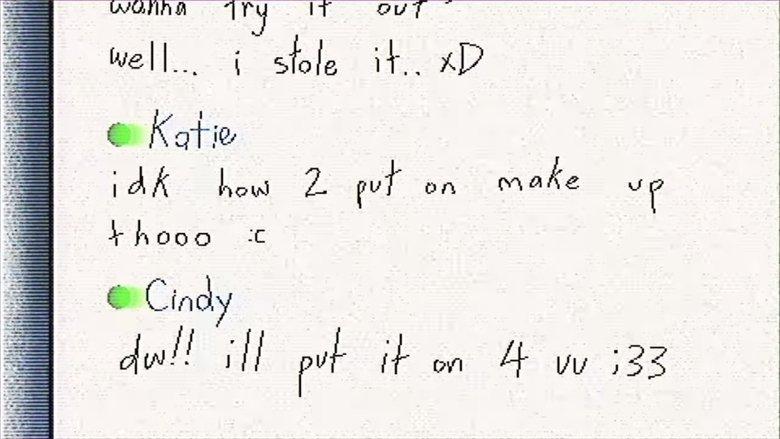 wanna try it out?
well... i stole it.. xD
Katie
idk how 2 put on make up
thooo :c
Cindy
dw!! i'll put it on 4 uu ;33